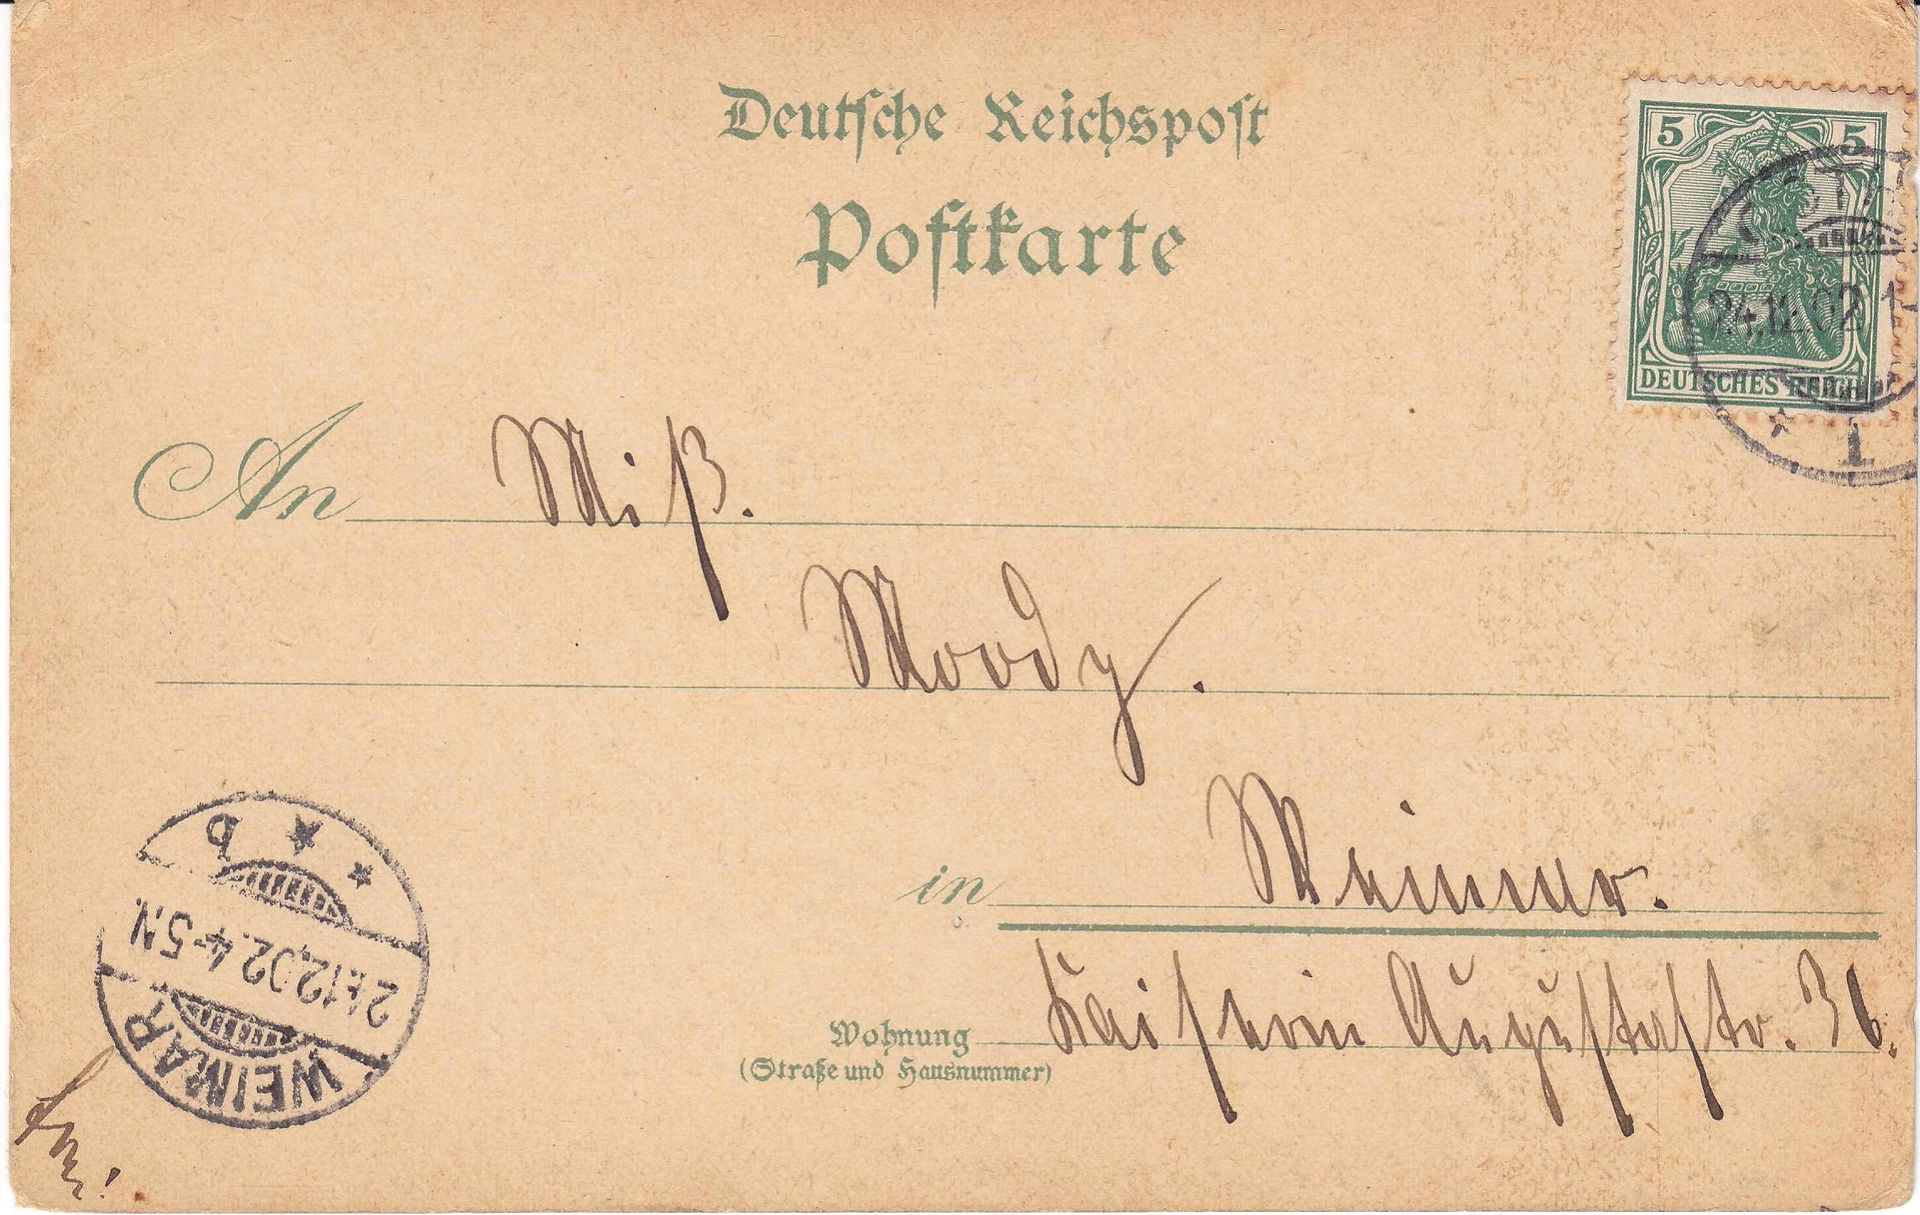 Deutsche Reichspost
Postkarte
5 5
24.12.02 1-
DEUTSCHES REICH
1
An Miß.
Moody.
in Weimar.
Wohnung Kaiserin Augustastr. 36.
(Straße und Hausnummer)
WEIMAR
24.12.02. 4-5N.
* * b